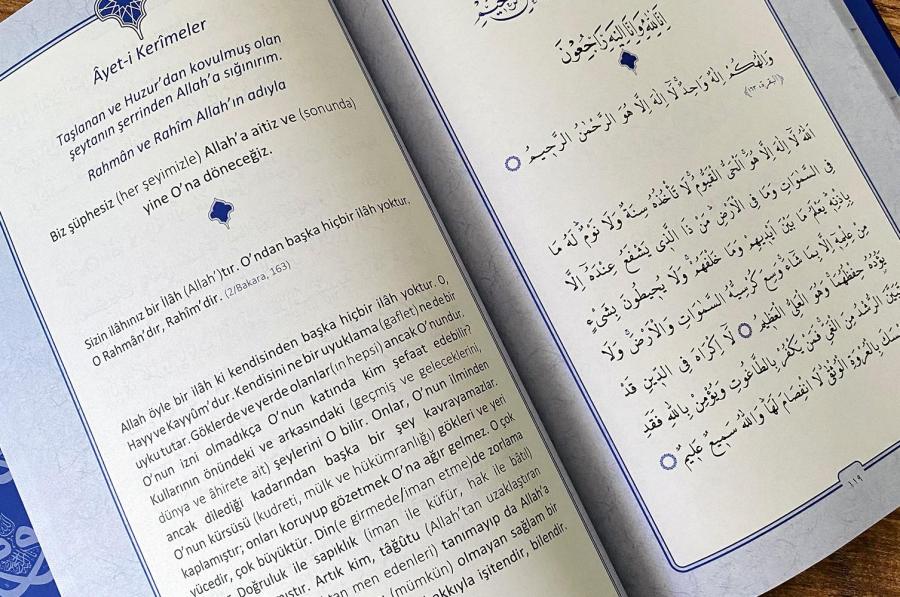 Âyet-i Kerîmeler
Taşlanan ve Huzur'dan kovulmuş olan
şeytanın şerrinden Allah'a sığınırım.
Rahmân ve Rahîm Allah'ın adıyla
Biz şüphesiz (her şeyimizle) Allah'a aitiz ve (sonunda)
yine O'na döneceğiz.
Sizin ilâhınız bir ilâh (Allah')tır. O'ndan başka hiçbir ilâh yoktur.
O Rahmân'dır, Rahîm'dir. (2/Bakara, 163)
Allah öyle bir ilâh ki kendisinden başka hiçbir ilâh yoktur. O,
Hayy ve Kayyûm'dur. Kendisini ne bir uyuklama (gaflet) ne de bir
uyku tutar. Göklerde ve yerde olanlar (ın hepsi) ancak O'nundur.
O'nun izni olmadıkça O'nun katında kim şefaat edebilir?
Kullarının önündeki ve arkasındaki (geçmiş ve geleceklerini,
dünya ve âhirete ait) şeylerini O bilir. Onlar, O'nun ilminden
ancak dilediği kadarından başka bir şey kavrayamazlar.
O'nun kürsüsü (kudreti, mülk ve hükümranlığı) gökleri ve yeri
kaplamıştır; onları koruyup gözetmek O'na ağır gelmez. O çok
yücedir, çok büyüktür. Din(e girmede/iman etme)de zorlama
Doğruluk ile sapıklık (iman ile küfür, hak ile bâtıl)
Artık kim, tâğûtu (Allah'tan uzaklaştıran
men edenleri) tanımayıp da Allah'a
(mümkün) olmayan sağlam bir
hakkıyla işitendir, bilendir.
اِنَّا لِلّٰهِ وَاِنَّٓا اِلَيْهِ رَاجِعُونَ
وَاِلٰهُكُمْ اِلٰهٌ وَاحِدٌ لَٓا اِلٰهَ اِلَّا هُوَ الرَّحْمٰنُ الرَّحٖيمُ
اَللّٰهُ لَٓا اِلٰهَ اِلَّا هُوَ الْحَیُّ الْقَيُّومُ لَا تَأْخُذُهُ سِنَةٌ وَلَا نَوْمٌ لَهُ مَا
فِى السَّمٰوَاتِ وَمَا فِى الْاَرْضِ مَنْ ذَا الَّذٖى يَشْفَعُ عِنْدَهُٓ اِلَّا
بِاِذْنِهٖ يَعْلَمُ مَا بَيْنَ اَيْدٖيهِمْ وَمَا خَلْفَهُمْ وَلَا يُحٖيطُونَ بِشَیْءٍ
مِنْ عِلْمِهٖٓ اِلَّا بِمَا شَٓاءَ وَسِعَ كُرْسِيُّهُ السَّمٰوَاتِ وَالْاَرْضَ وَلَا
يَؤُ۫دُهُ حِفْظُهُمَا وَهُوَ الْعَلِىُّ الْعَظٖيمُ لَٓا اِكْرَاهَ فِى الدّٖينِ قَدْ
الرُّشْدُ مِنَ الْغَىِّ فَمَنْ يَكْفُرْ بِالطَّاغُوتِ وَيُؤْمِنْ بِاللّٰهِ فَقَدِ
بِالْعُرْوَةِ الْوُثْقٰى لَا انْفِصَامَ لَهَا وَاللّٰهُ سَمٖيعٌ عَلٖيمٌ
١١٩